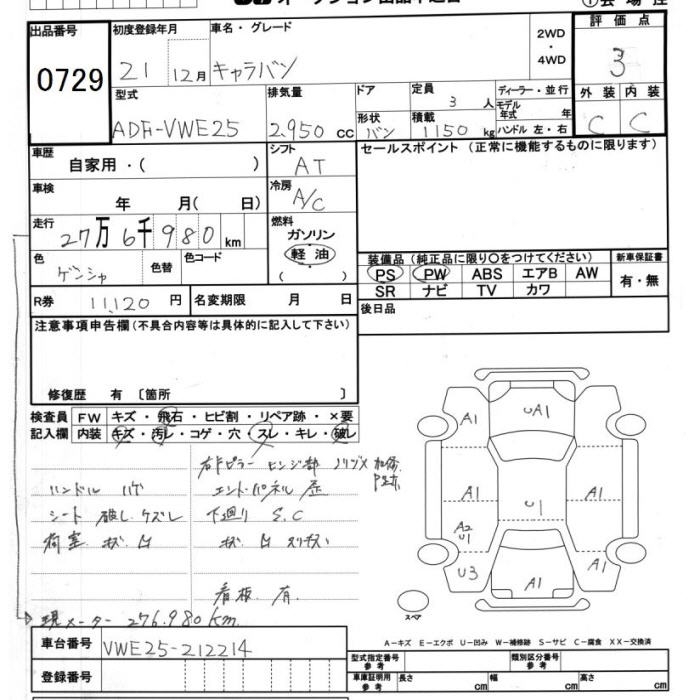 出品番号
0729
初度登録年月
21 12月
車名・グレード
キャラバン
2WD
・
4WD
評価点
3
型式
ADF-VWE25
排気量
2,950 cc
ドア
形状
バン
定員
3 人
積載
1150 kg
ディーラー・並行
モデル年式 年
ハンドル 左・右
外装 内装
C C
車歴
自家用・( )
シフト
AT
セールスポイント (正常に機能するものに限ります)
車検
年 月( 日)
冷房
A/C
走行
27万6千980km
燃料
ガソリン
軽油
( )
色
ゲンシャ
色替
色コード
装備品 (純正品に限り〇をつけてください)
新車保証書
PS PW ABS エアB AW
SR ナビ TV カワ
有・無
R券 11,120 円
名変期限 月 日
後日品
注意事項申告欄(不具合内容等は具体的に記入して下さい)
修復歴 有 〔箇所 〕
検査員
記入欄
FW キズ・飛石・ヒビ割・リペア跡・×要
内装 キズ・汚レ・コゲ・穴・スレ・キレ・破レ
ハンドル ハゲ
シート 破レ クズレ
荷室 キズ 凹
右Fピラー ヒンジ部
エンドパネル 歪
下廻り S.C
キズ 凹
看板 有
現メーター 276,980km
A1
UA1
A1
A1
U1
A1
A2
U1
U3
A1
A1
スペア
A-キズ E-エクボ U-凹み W-補修跡 S-サビ C-腐食 XX-交換済
車台番号
VWE25-212214
登録番号
型式指定番号
参考
類別区分番号
参考
車庫証明用
参考
長さ cm
幅 cm
高さ cm